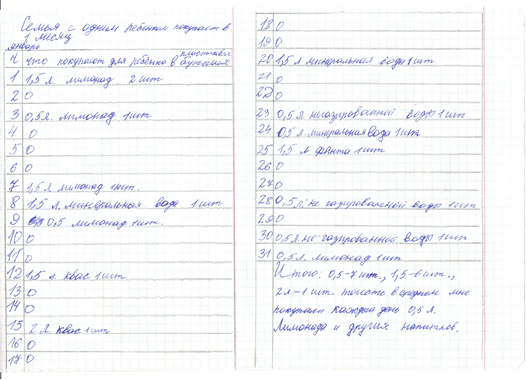 Семья с одним ребенком покупает в
1 месяц
январь
Ч что покупают для ребенка в пластиковой бутылкой
1 1,5 л. лимонад 2 шт
2 0
3 0,5л. лимонад 1шт
4 0
5 0
6 0
7 1,5 л лимонад 1шт.
8 1,5 л. минеральная вода 1шт
9 0,5 лимонад 1шт.
10 0
11 0
12 1,5 л квас 1шт
13 0
14 0
15 2 л. квас 1шт
16 0
17 0
18 0
19 0
20 1,5 л минеральная вода 1шт
21 0
22 0
23 0,5 л негазированной воды 1шт
24 0,5 л. минеральная вода 1шт.
25 1,5 л фанта 1шт
26 0
27 0
28 0,5л. не газированной воды 1шт
29 0
30 0,5л. не газированной воды 1шт
31 0,5л. лимонад 1шт
Итого: 0,5-7шт., 1,5-6шт.,
2л-1шт. тоесть в среднем мне
покупали каждый день 0,5 л.
Лимонада и других напитков.